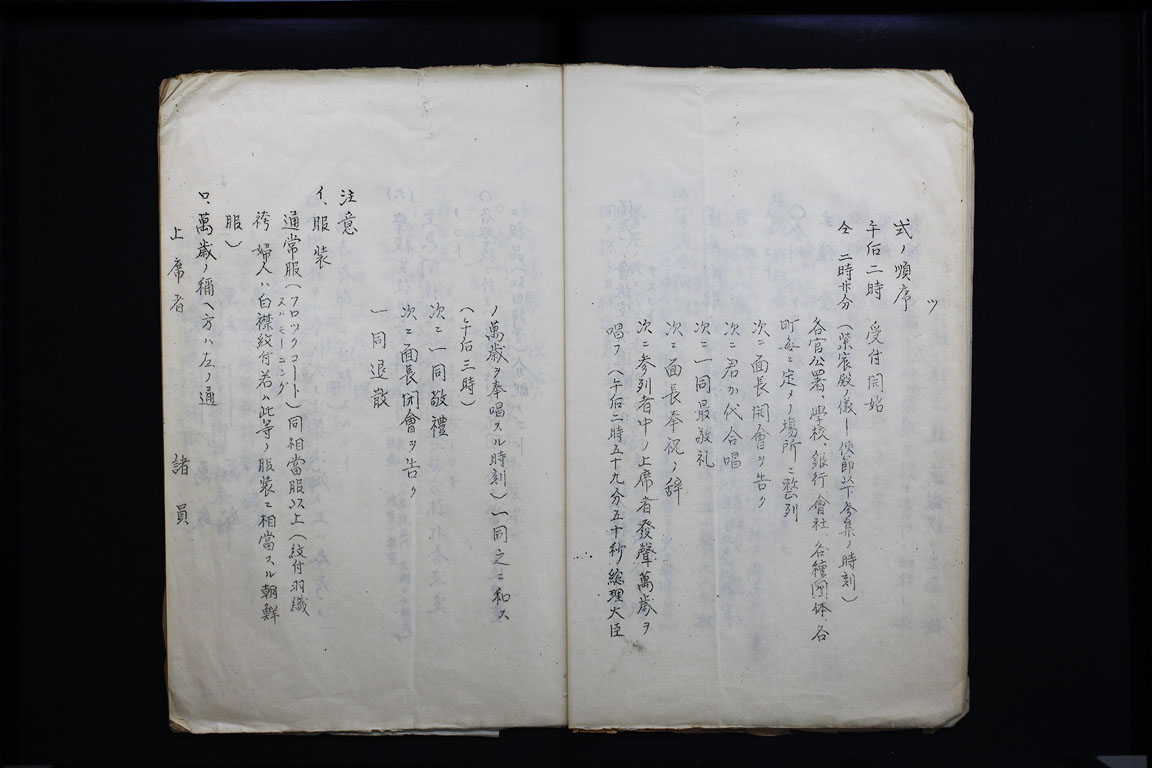 ツ
式ノ順序
午后二時 受付開始
仝 二時廿分(紫宸殿ノ儀ー供節以下参集ノ時刻)
各官公署、學校、銀行會社 各種團体 各
町每ニ定メノ場所ニ整列
次ニ面長開會ヲ告ク
次ニ君か代合唱
次ニ一同最敬礼
次ニ面長奉祝ノ辞
次ニ参列者中ノ上席者發聲萬歳ヲ
唱フ(午后二時五十九分五十秒總理大臣
ノ萬歳ヲ奉唱スル時刻)一同之ニ和ス
(午后三時)
次ニ一同敬禮
次ニ面長閉會ヲ告ク
一同退散
注意
イ、服装
通常服(フロックコート又ハモーニング)同相當服以上(紋付羽織
袴 婦人ハ白襟紋付若ハ此等ノ服装ニ相當スル朝鮮
服)
ロ、萬歳ノ稱ヘ方ハ左ノ通
上席者 諸員